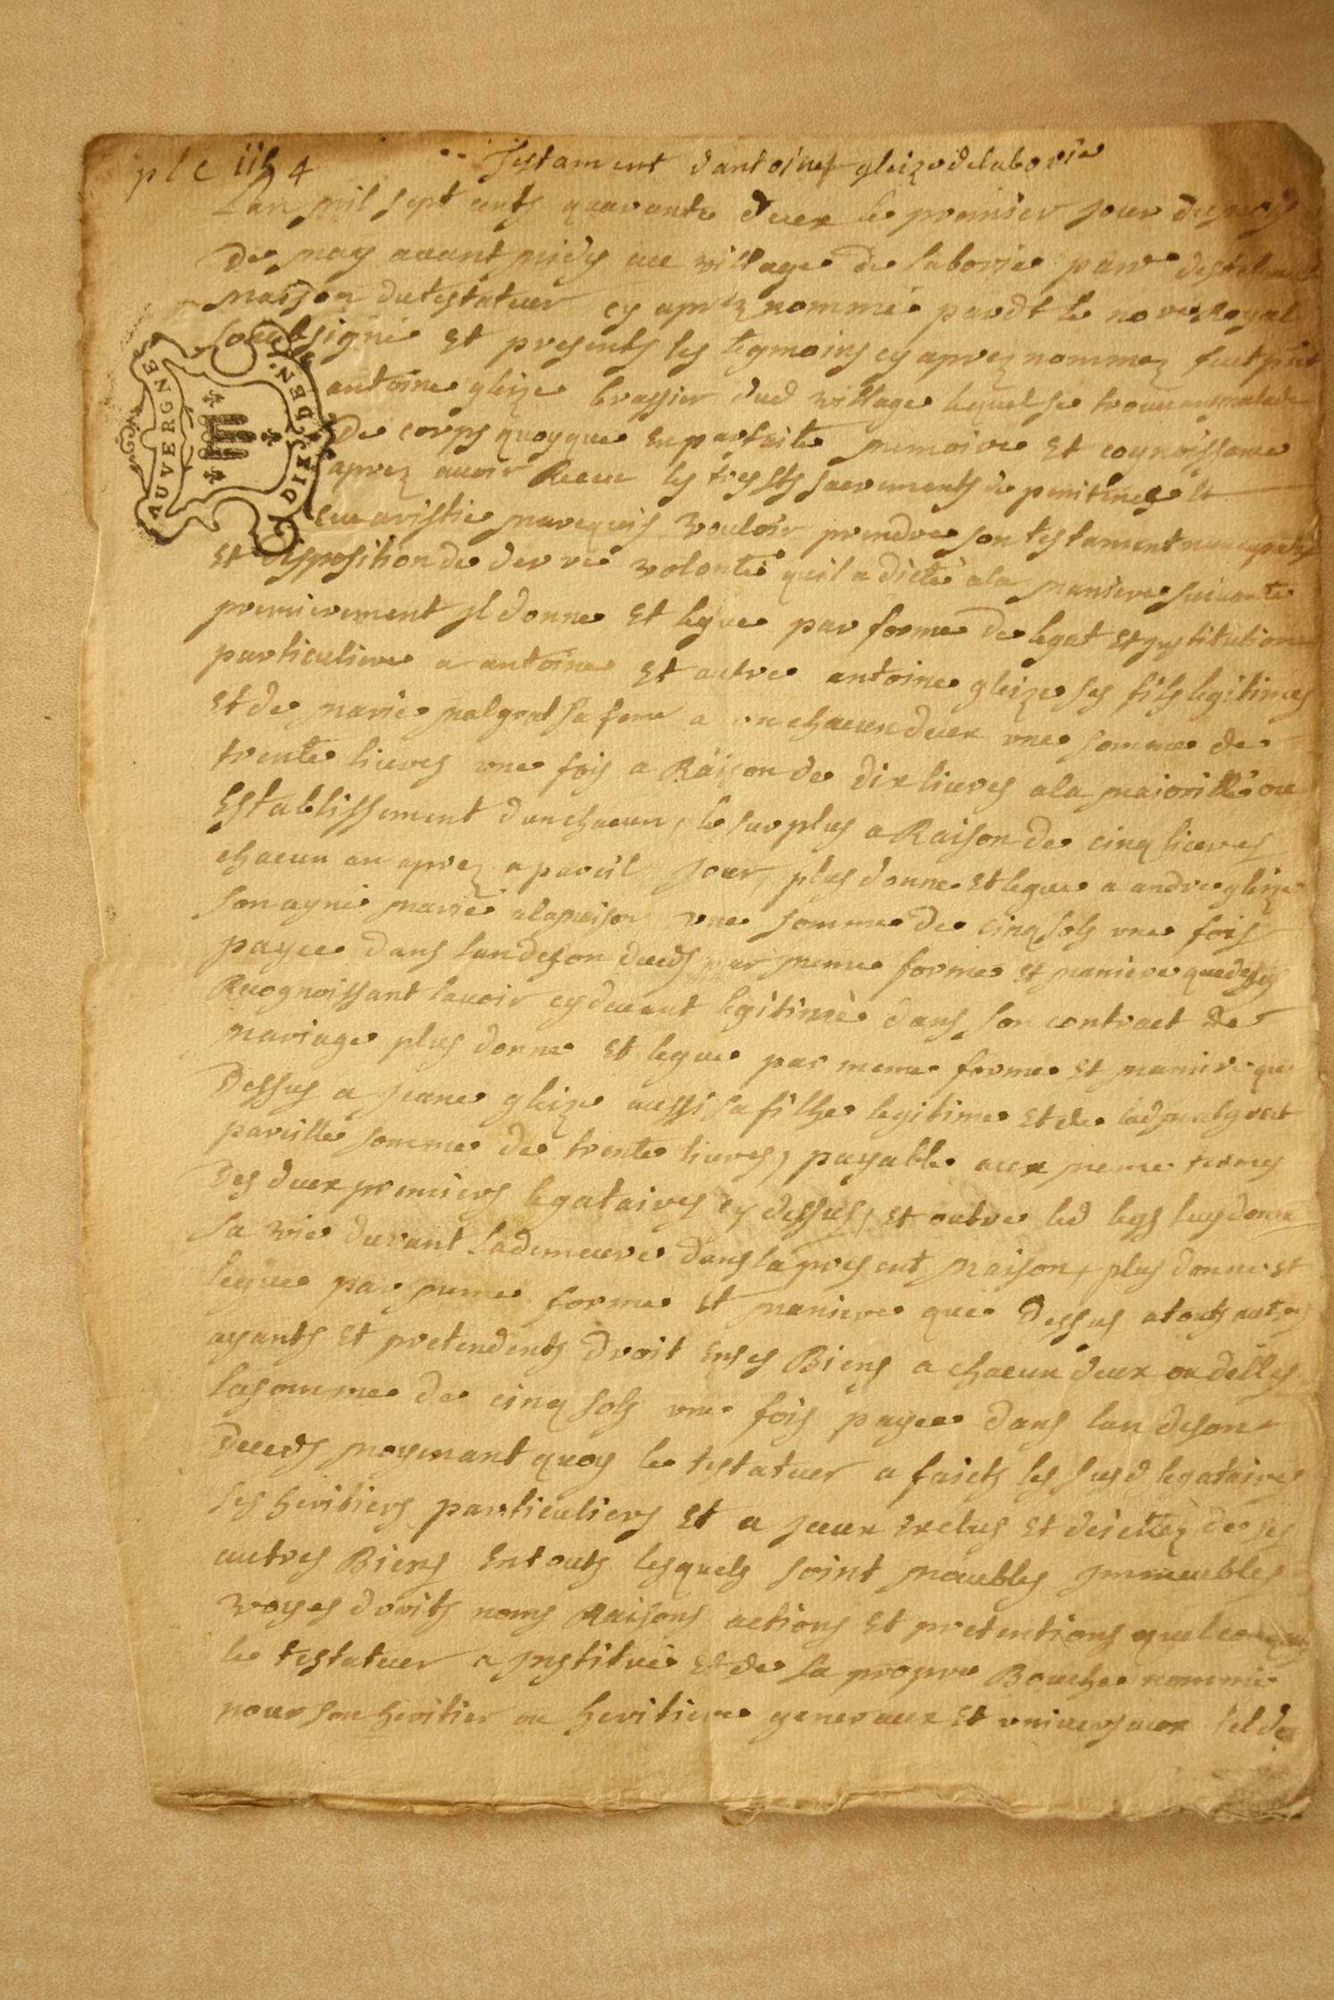 Testament dantoine gleize delaborie
Lan mil sept cents quarante deux le premier jour du mois
De may avant midy au village de laborie
maison dutestateur cy aprez nommé pardt le no.re Royal
soubsigné Et presents les tesmoins cy aprez nommez feut pnt
AUVERGNE
DIX DEN.
antoine gleize brassier dud village lequel se trouvant malade
De corps quoyque En parfaite memoire Et cognoissance
aprez avoir Receu les tres Sts sacrements de penitence et
eucaristie vouloir prendre son testament
Et disposition de der.re volonté quil a dicté ala maniere suivante
premierement Jl donne Et legue par forme de legat Et Jnstitution
particuliere a antoine Et autre antoine gleize ses fils legitimes
Et de marie malgrat sa feme a un chacun deux une somme de
trente livres une fois a Raison de dix livres ala maiorité ou
Establissement dunchacun, le surplus a Raison de cinq livres
chacun an aprez a pareil jour, plus donne Et legue a andre gleize
son ayné marié une somme de cinq sols une fois
payée dans landeson deceds par meme forme Et maniere quedessus
Recognoissant lavoir cydevant legitimé dans son contract de
mariage plus donne Et legue par meme forme Et maniere que
Dessus a Jeane gleize aussi sa filhe legitime Et de lad malgrat
pareille somme de trente livres, payable aux meme termes
Des deux premiers legataires cy dessus, Et outre led legs luy donne
sa vie durant sademeure dans la present maison, plus donne Et
legue par meme forme Et maniere que Dessus atouts autres
ayants Et pretendents droit En ses Biens a chacun deux ou delles
lasomme de cinq sols une fois payée dans lan deson
Deceds moyenant quoy le testateur a faicts les susd legataires
ses heritiers particuliers Et a jceux Exclus Et deiettez de ses
autres Biens En touts lesquels soint meubles Jmmeubles
voyes droits noms Raisons actions Et pretentions quelconques
le testateur a Jnstitué Et de sa propre Bouche nommé
pour son heritier ou heritiere generaux Et universaux